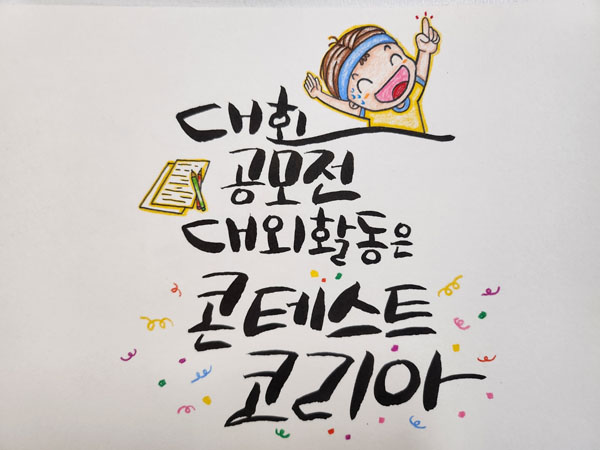 대회
공모전
대외활동은
콘테스트
코리아